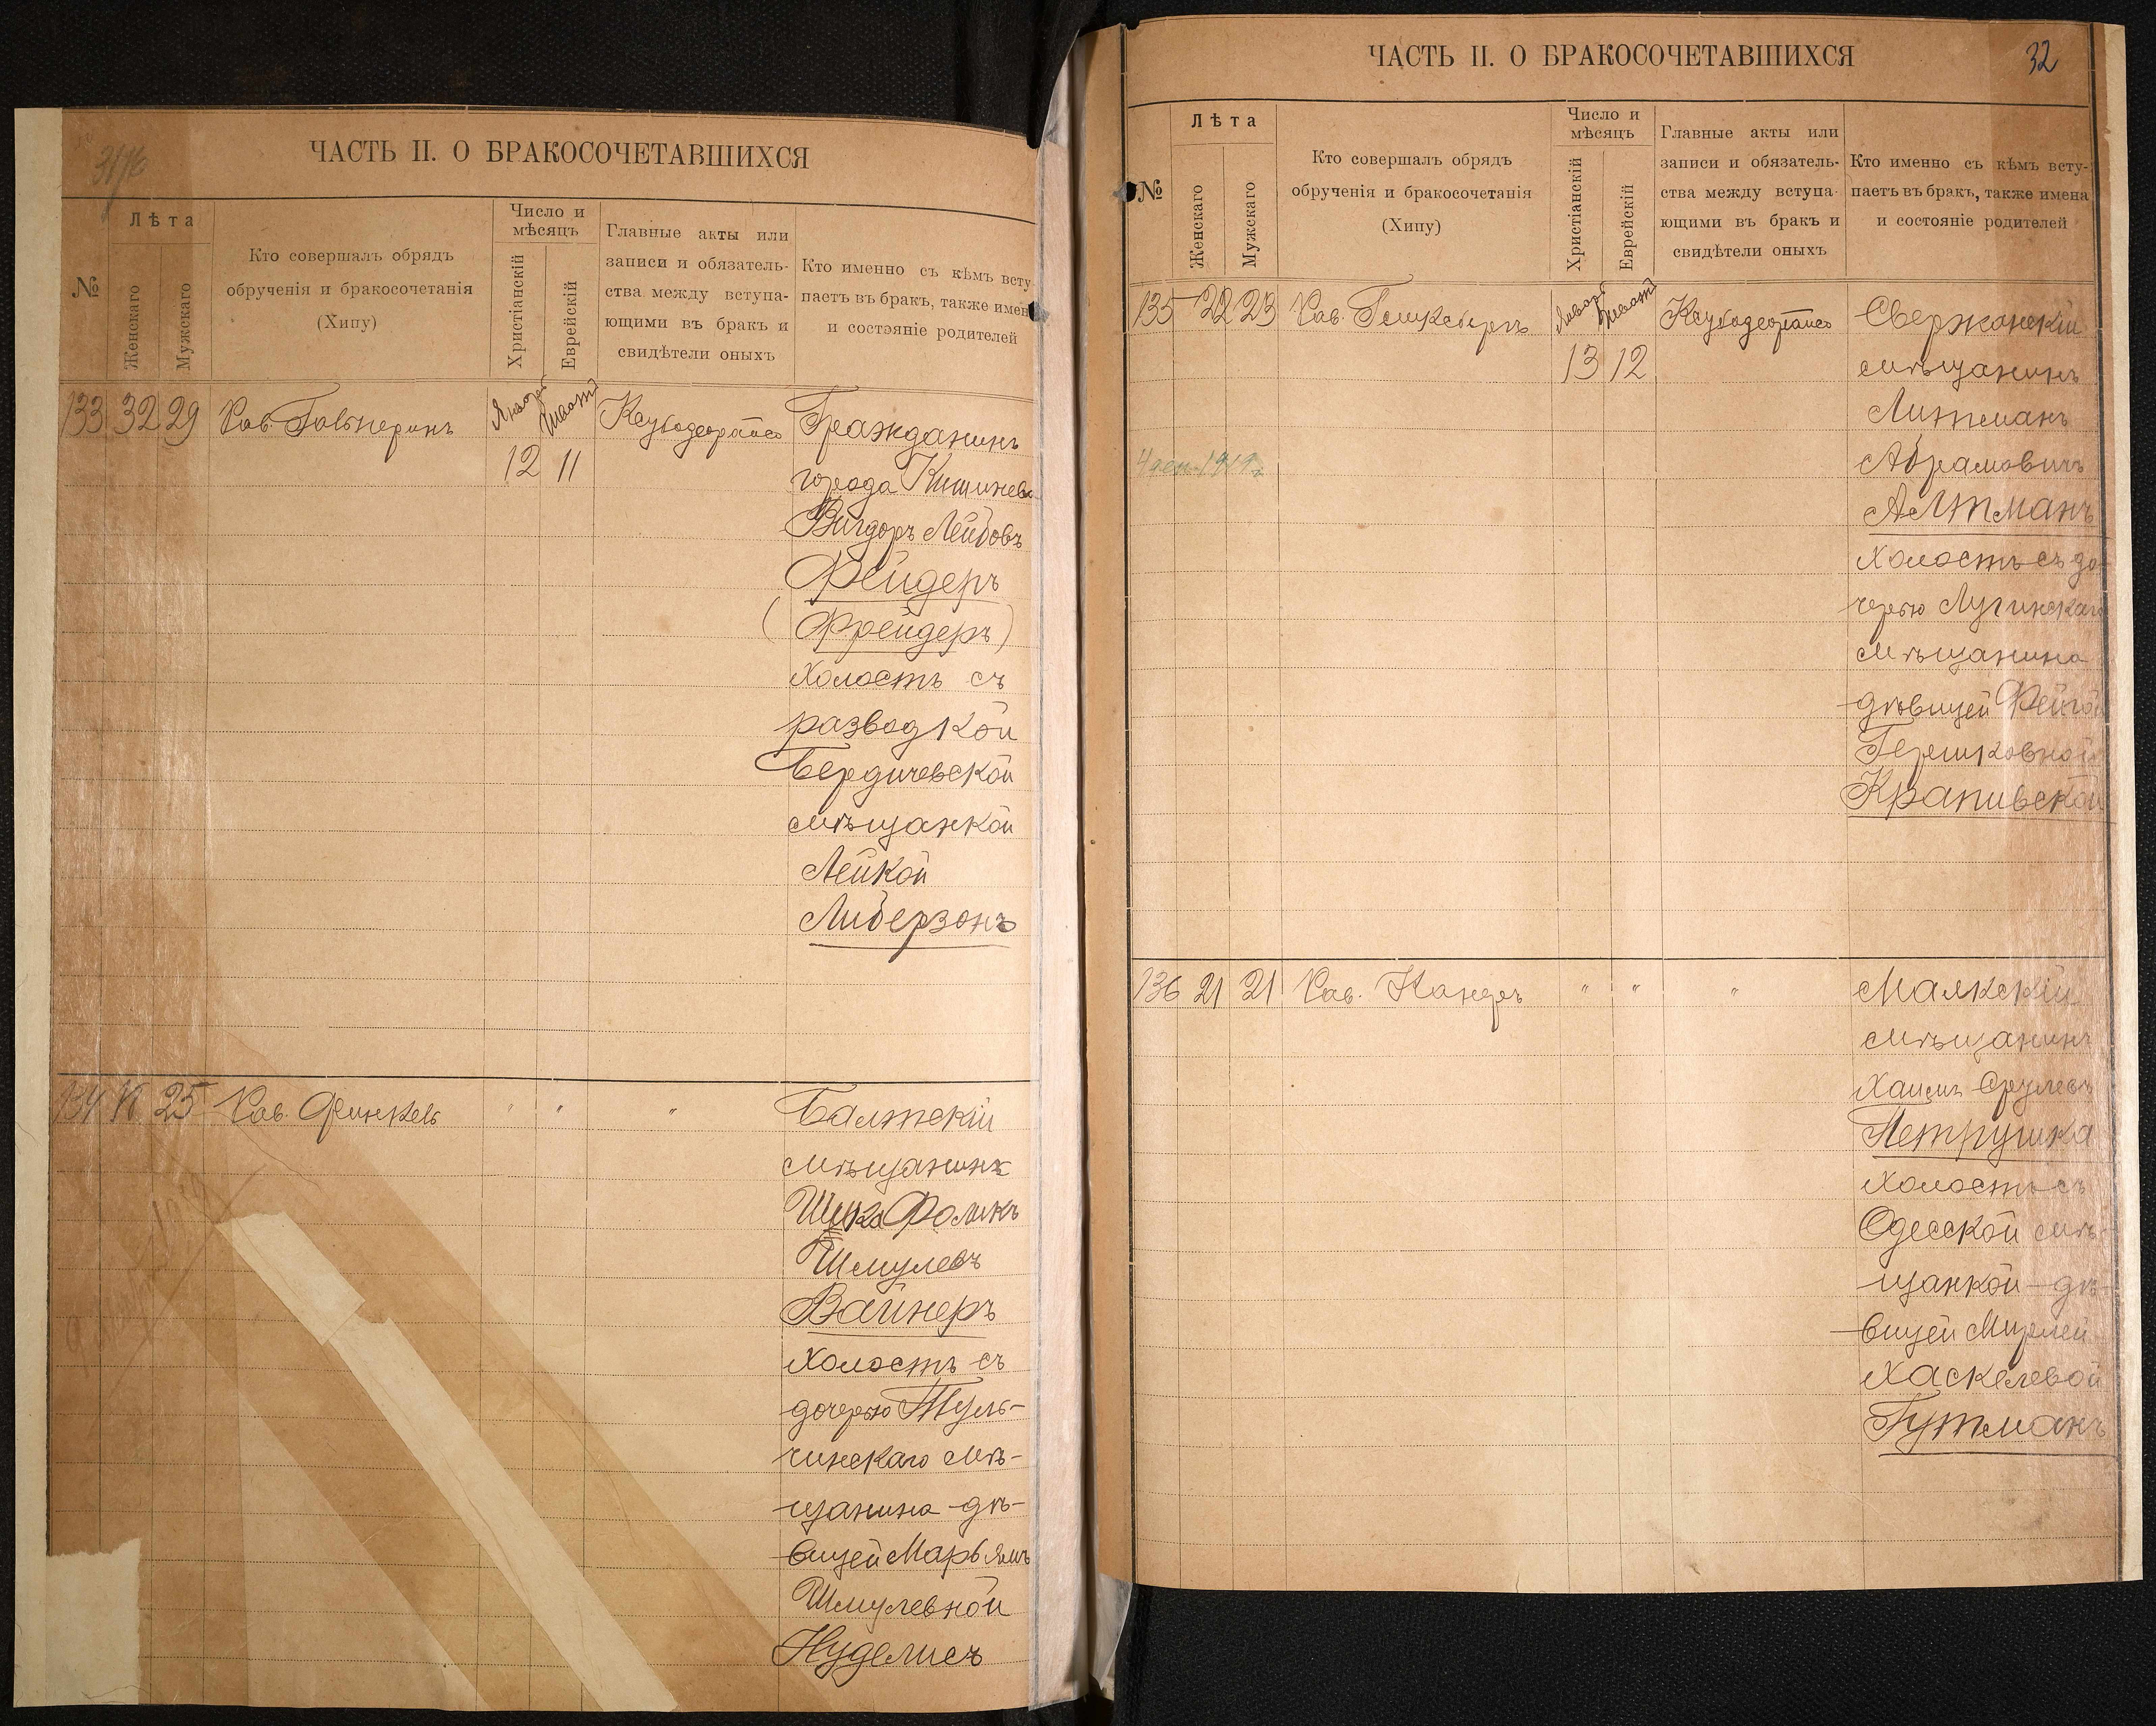 ЧАСТЬ II. О БРАКОСОЧЕТАВШИХСЯ
№
Лѣта
Женскаго
Мужскаго
Кто совершалъ обрядъ
обрученія и бракосочетанія
(Хипу)
Число и
мѣсяцъ
Христіанскій
Еврейскій
Главные акты или
записи и обязатель-
ства между вступа-
ющими въ бракъ и
свидѣтели оныхъ
Кто именно съ кѣмъ всту
паетъ въ бракъ, также имен
и состояніе родителей
133 32 29 Рав. Гальперинъ
12 11
Гражданинъ
города Кишинева
Вигдоръ Лейбовъ
Фейдеръ
(Фрейдеръ)
холостъ съ
разводкой
Бердичевской
мѣщанкой
Лейкой
Либерзонъ
134 25 Рав. Финкель
" " "
Балтскій
мѣщанинъ
Фоликъ
Шмулевъ
Вайнеръ
холостъ съ
дочерью Туль-
чинскаго мѣ-
щанина дѣ-
вицей Марьямъ
Шмулевной
Нуделисъ
ЧАСТЬ II. О БРАКОСОЧЕТАВШИХСЯ
32
№
Лѣта
Женскаго
Мужскаго
Кто совершалъ обрядъ
обрученія и бракосочетанія
(Хипу)
Число и
мѣсяцъ
Христіанскій
Еврейскій
Главные акты или
записи и обязатель-
ства между вступа-
ющими въ бракъ и
свидѣтели оныхъ
Кто именно съ кѣмъ всту-
паетъ въ бракъ, также имена
и состояніе родителей
135 22 23 Рав.
13 12
Свержанскій
мѣщанинъ
Литманъ
Абрамовичъ
Альтманъ
холостъ съ до-
черью Лугинскаго
мѣщанина
дѣвицей Фейгой
Гершковной
Крапивской
136 21 21 Рав. Канеръ
" " "
Маякскій
мѣщанинъ
Хаимъ Срулевъ
Петрушка
холостъ съ
Одесской мѣ-
щанкой дѣ-
вицей Мирлей
Хаскелевой
Гутманъ